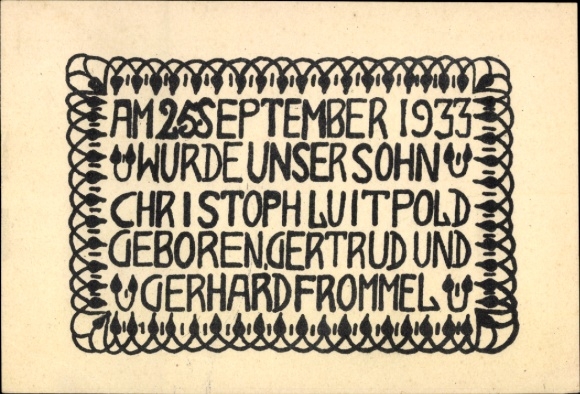 AM 25. SEPTEMBER 1933
WURDE UNSER SOHN
CHRISTOPH LUITPOLD
GEBOREN, GERTRUD UND
GERHARD FROMMEL